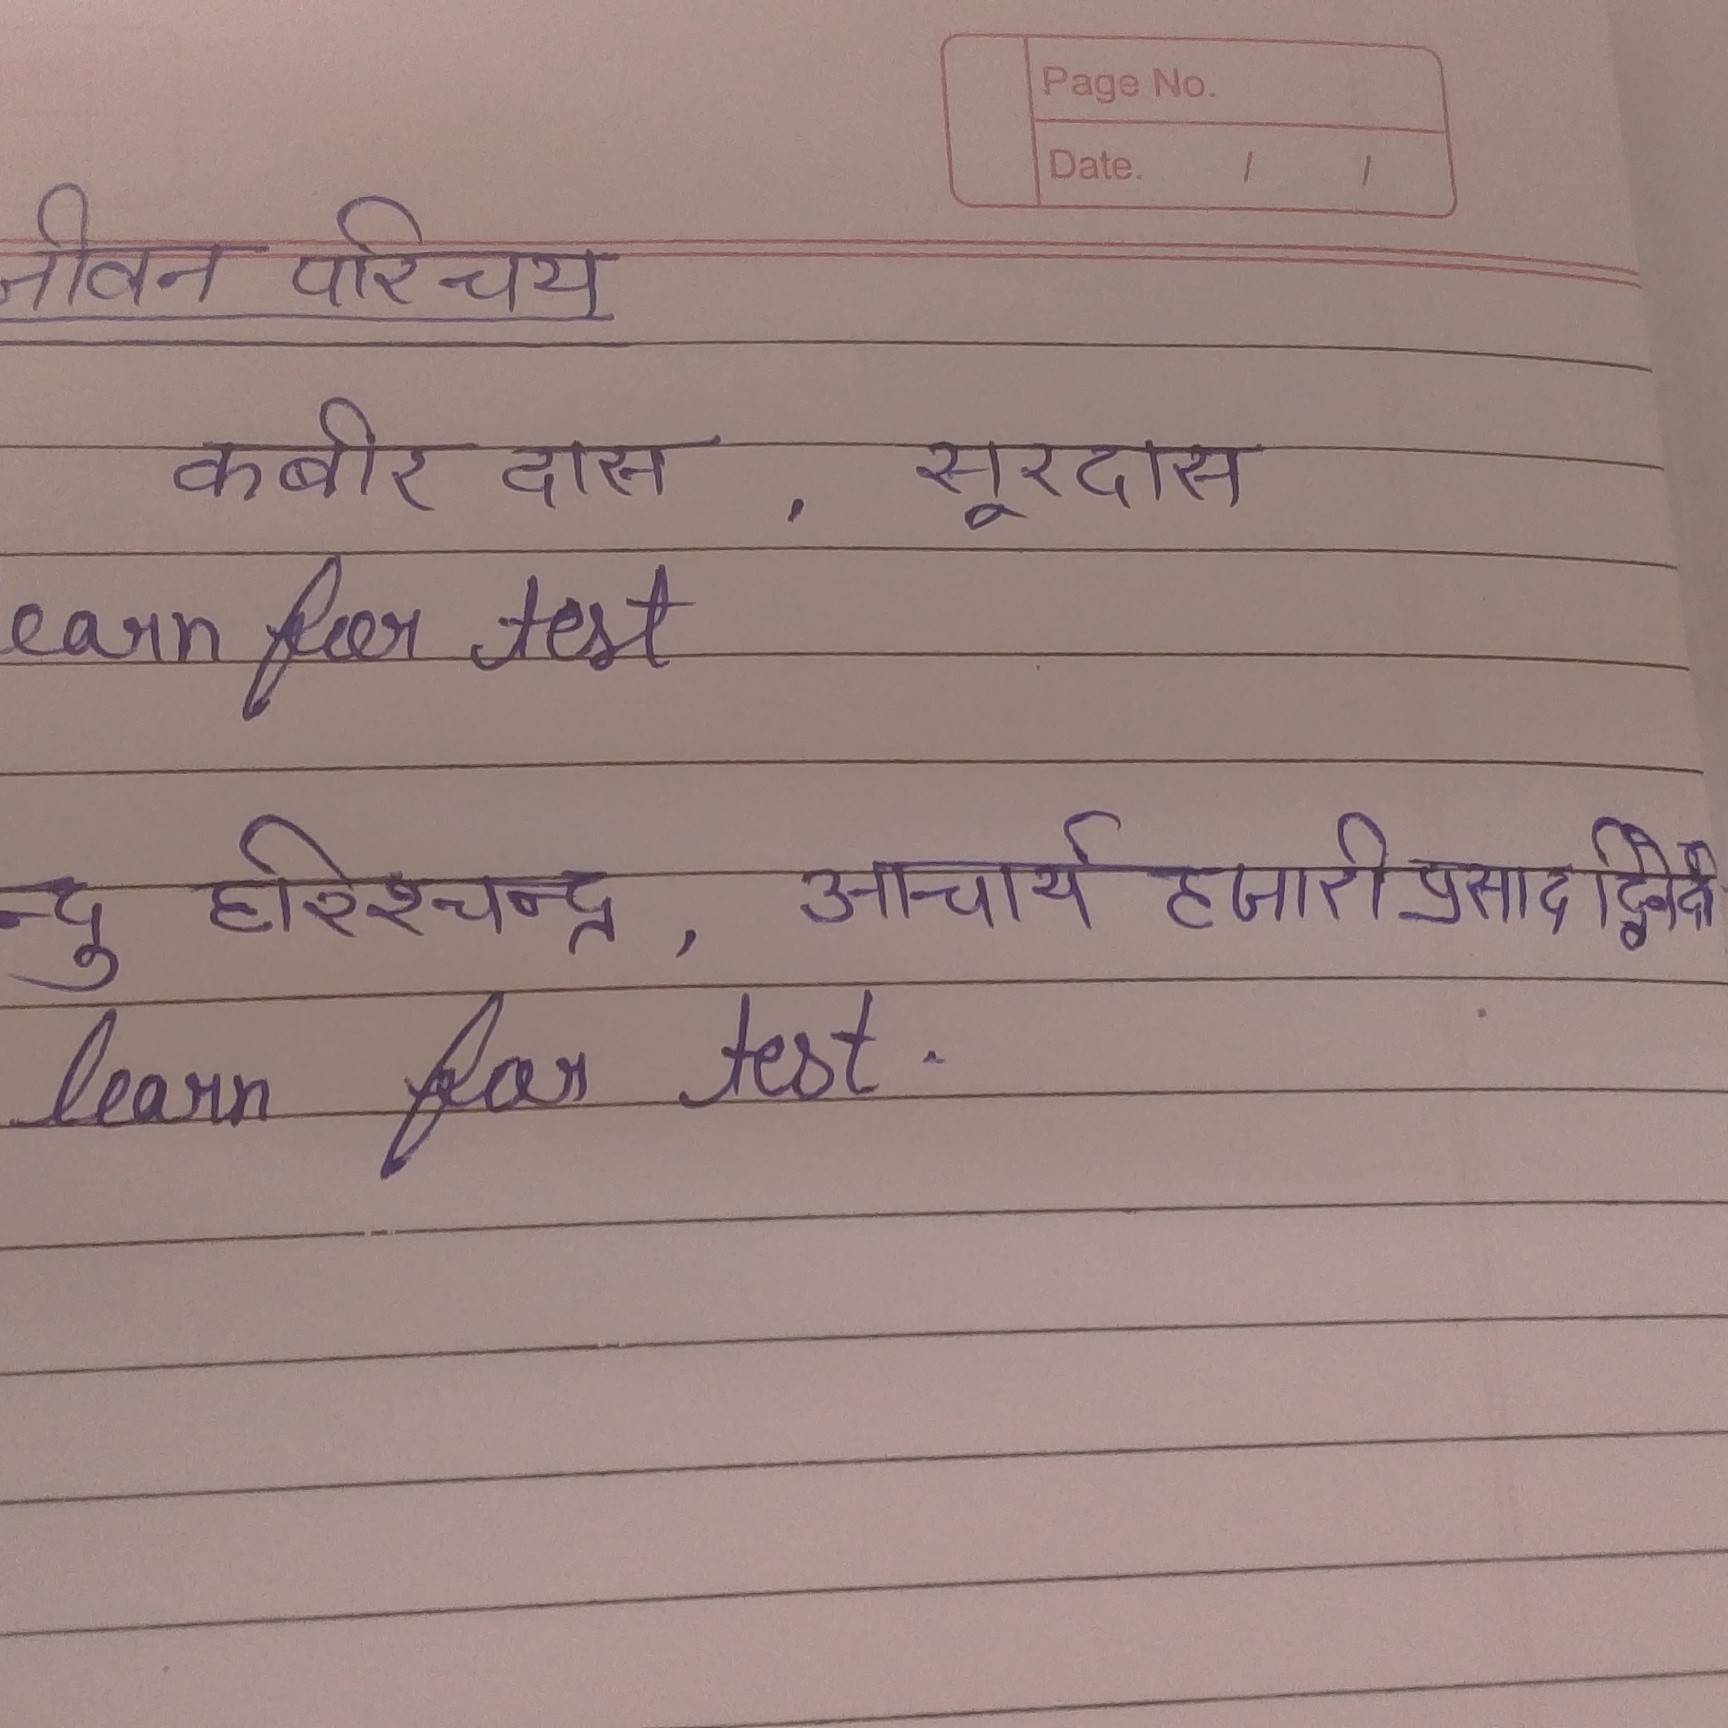 Page No.
Date. / /
जीवन परिचय
कबीर दास , सूरदास
earn for test
न्दु हरिश्चन्द्र , आचार्य हजारी प्रसाद द्विवेदी
learn for test .